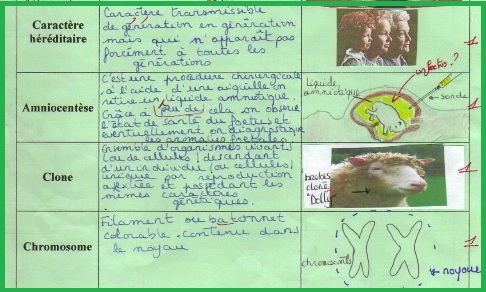 Caractère
héréditaire
Caractère transmissible
de génération en génération
mais qui n'apparaît pas
forcément à toutes les
générations
1
Amniocentèse
C'est une procédure chirurgicale
à l'aide d'une aiguille on
retire un liquide amniotique
Grâce à peu de cela on observe
l'état de santé du foetus et
éventuellement on diagnostique
les anomalies foetales
liquide
amniotique
foetus ?
sonde
1
Clone
Ensemble d'organismes vivants
(ou de cellules) descendant
d'un individu (ou cellules)
unique par reproduction
et possédant les
mêmes caractères
génétiques.
brebis
clone
"Dolly"
1
Chromosome
Filament ou batonnet
colorable contenu dans
le noyau
chromosome
noyau
1